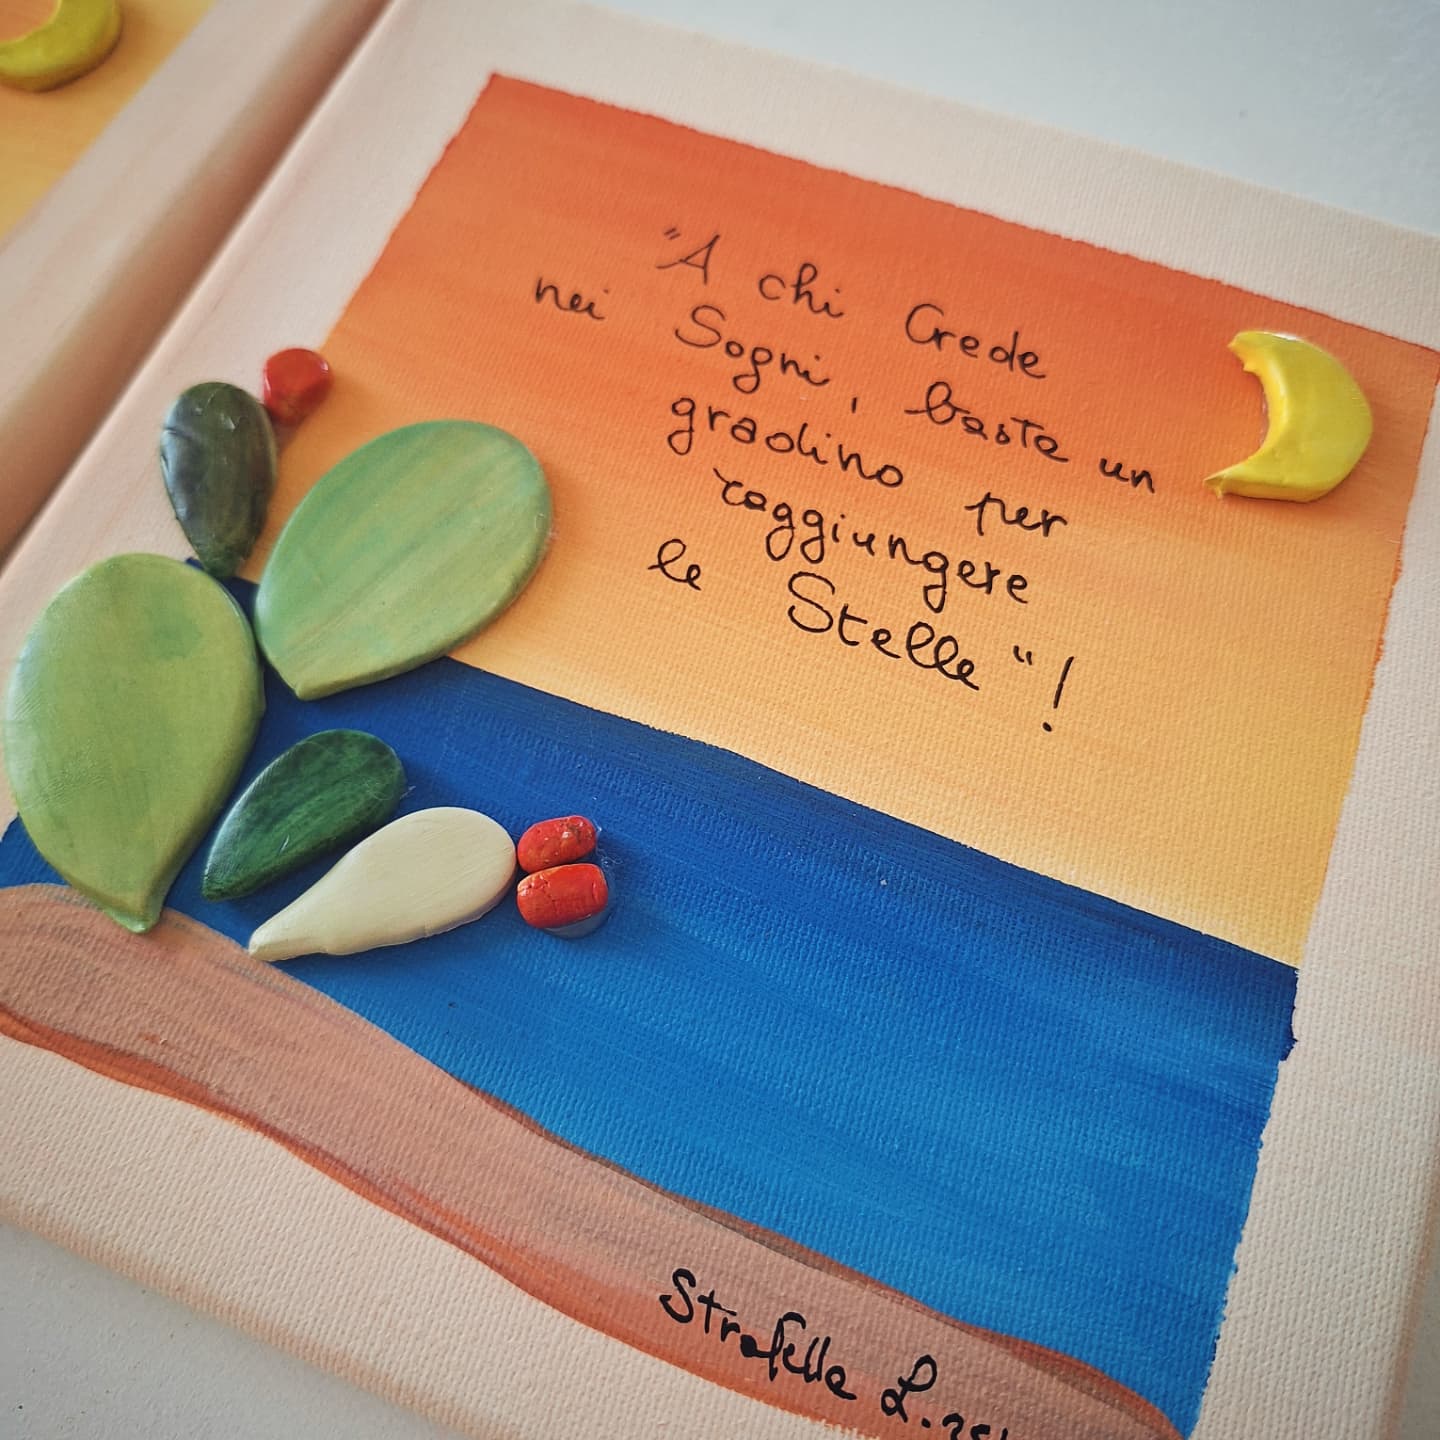 "A chi Crede
nei Sogni, basta un
gradino per
raggiungere
le Stelle"!
Strafella L.